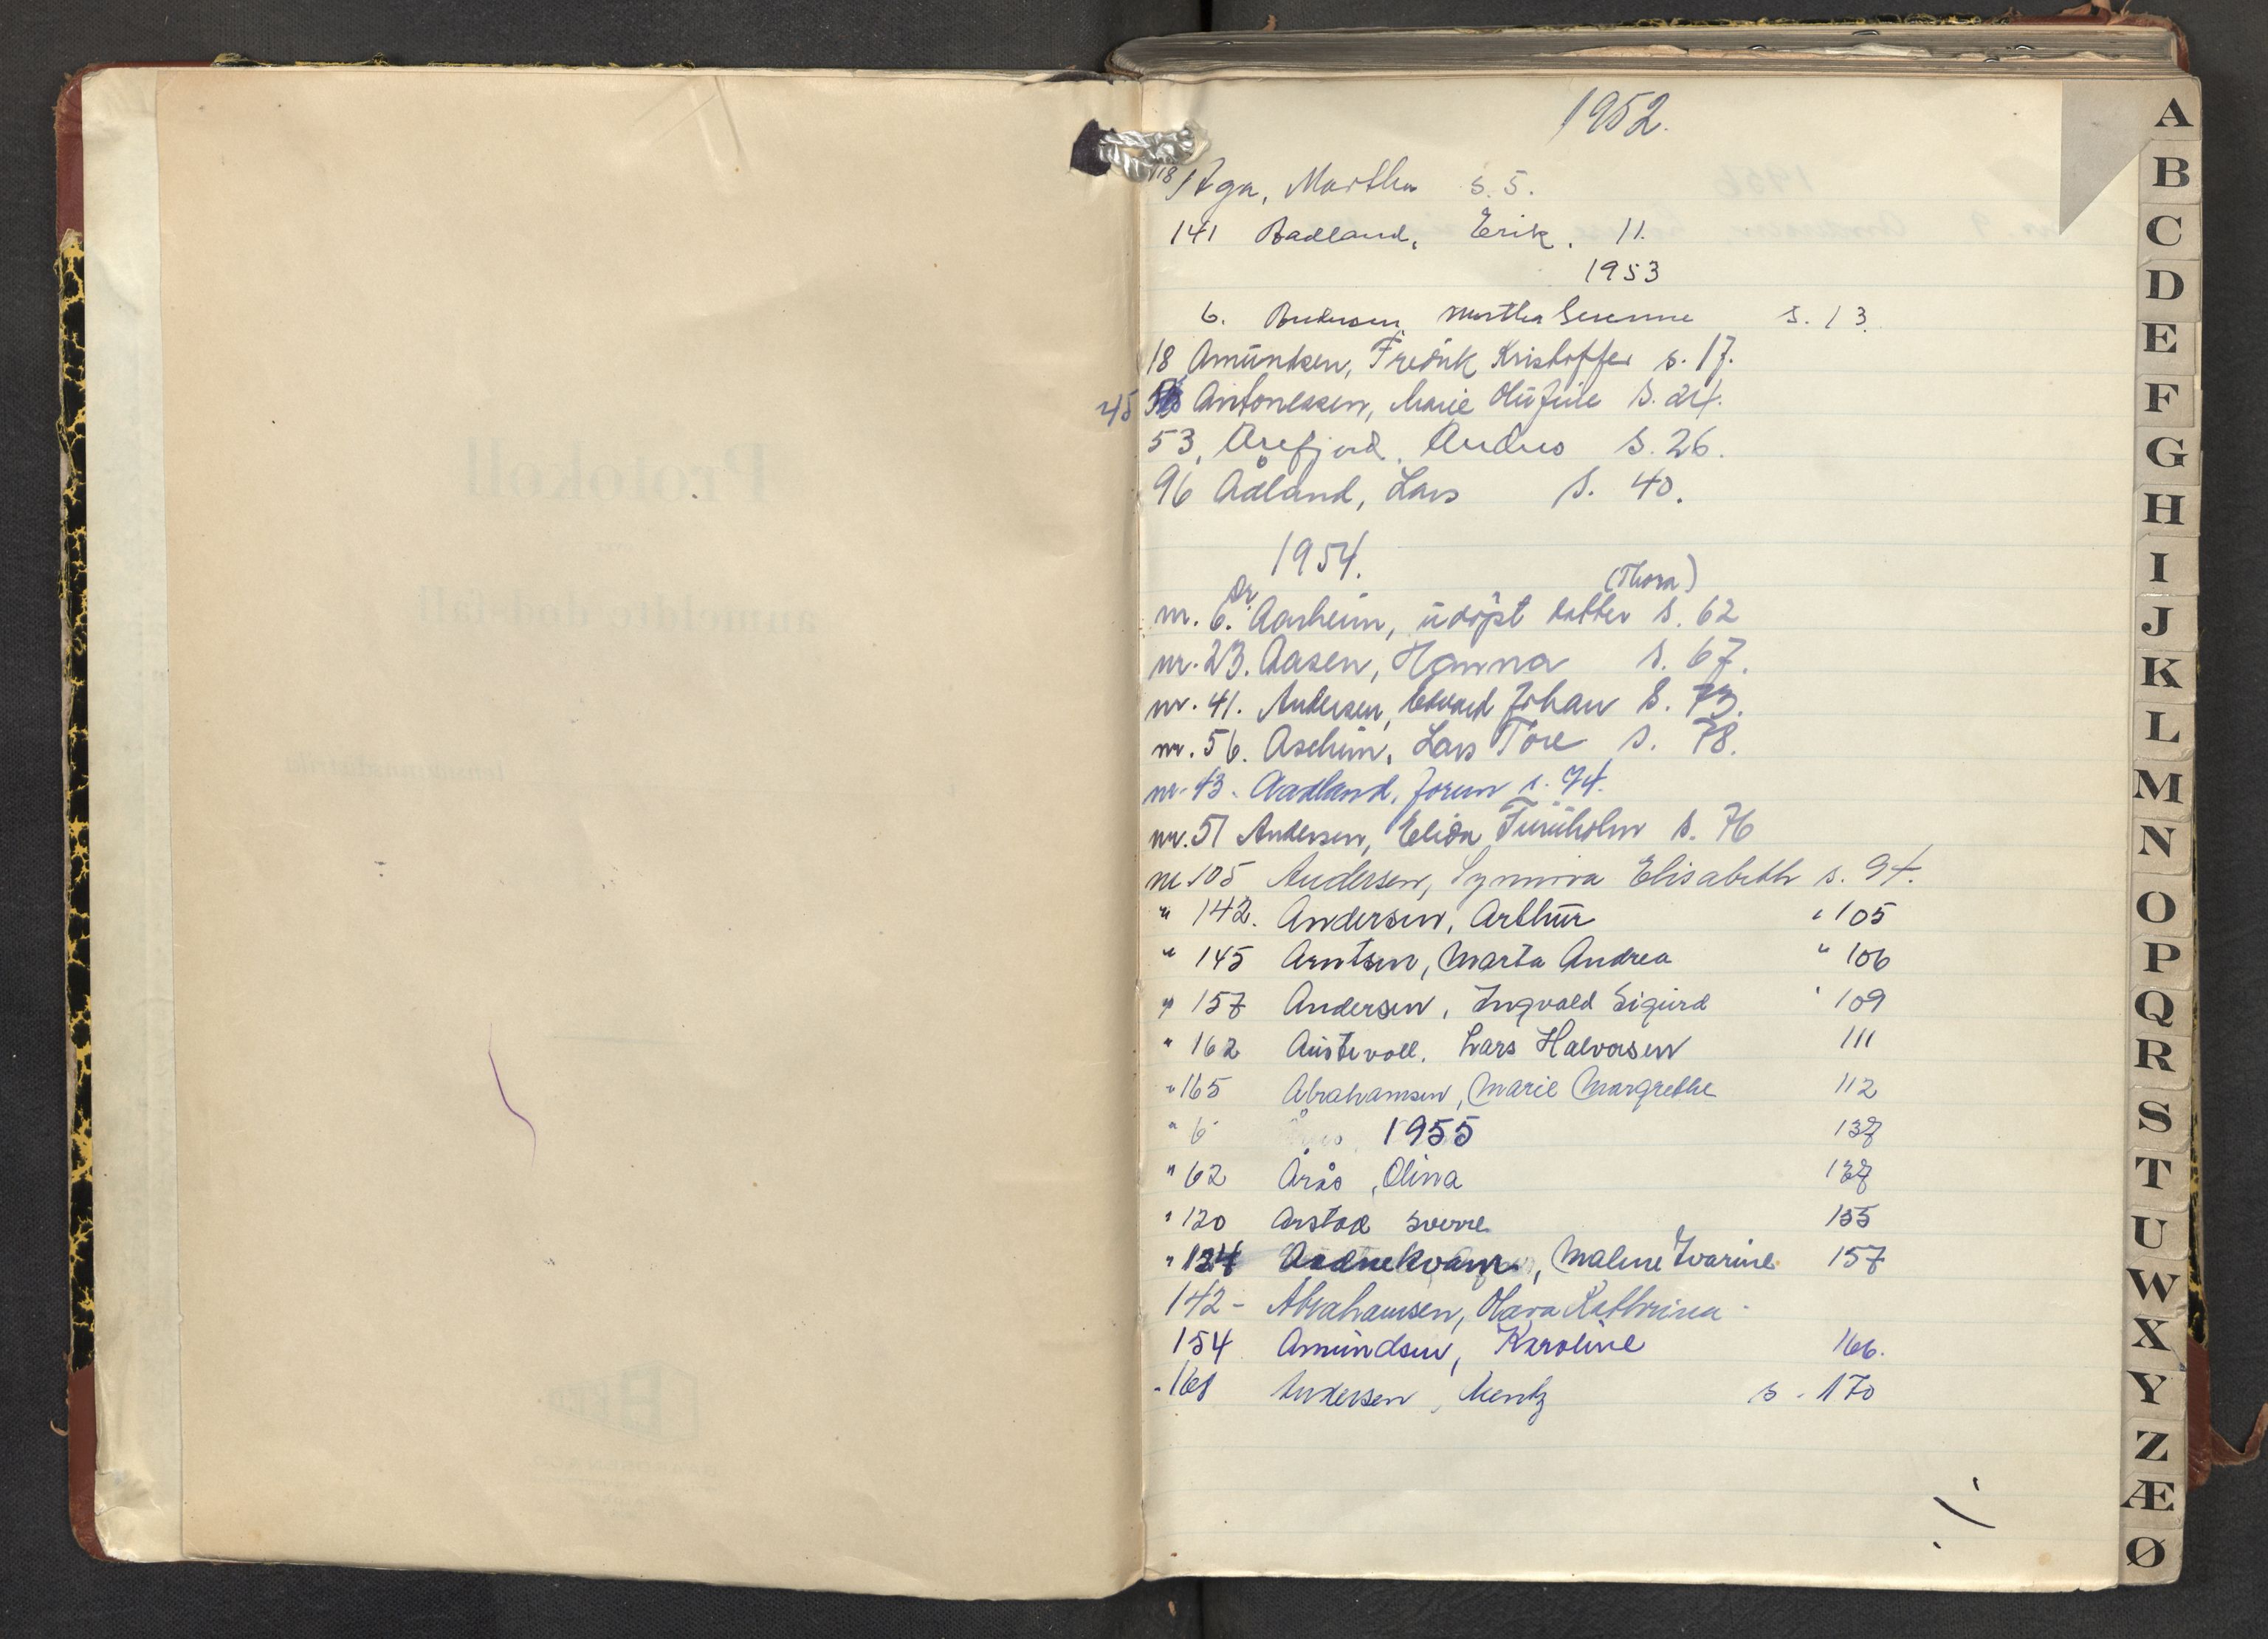 1952.
118 Aga, Martha s. 5.
141 Aadland, Erik. 11.
1953
6. Andersen, Martha Severine s. 13.
18 Amundsen, Fredrik Kristoffer s. 17.
45 Antonessen, Marie Olufine s. 24.
53, Arefjord, s. 26.
96 Ådland, Lars s. 40.
1954.
(Thora)
nr. 6. Aarheim, udöpt datter s. 62
nr. 23. Aasen, Hanna s. 67.
nr. 41. Andersen, Edvard Johan s. 73.
nr. 56. Aseheim, Lars Tore s. 78.
nr. 43. Aadland, Jorun s. 74.
nr. 51 Andersen, Elida Furuholm s. 76
nr 105 Andersen, Synnøva Elisabeth s. 94.
" 142. Andersen, Arthur " 105
" 145 Arntsen, Marta Andrea " 106
" 157 Andersen, Ingvald Sigurd " 109
" 162 Austevoll, Lars Halvorsen 111
" 165 Abrahamsen, Marie Margrethe 112
" 6 1955 137
" 62 Årås, Olina 137
" 120 Arstad Sverre 155
" 134 Aadnekvam, Malene Ivarine 157
142 - Abrahamsen, Olava Kathrina -
154 Amundsen, Karoline 166.
" 168 Andersen, Mentz s. 170
A
B
C
D
E
F
G
H
I
J
K
L
M
N
O
P
Q
R
S
T
U
W
X
Y
Z
Æ
Ø